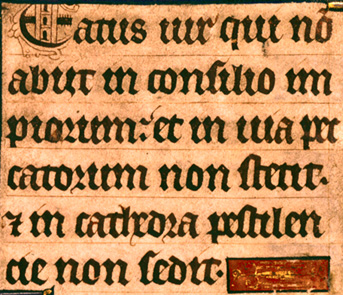 Eatus uir qui no
abut in consilio im
piorum: et in uia pec
catorum non stetit.
⁊ in cathedra pestilen
cie non sedit.